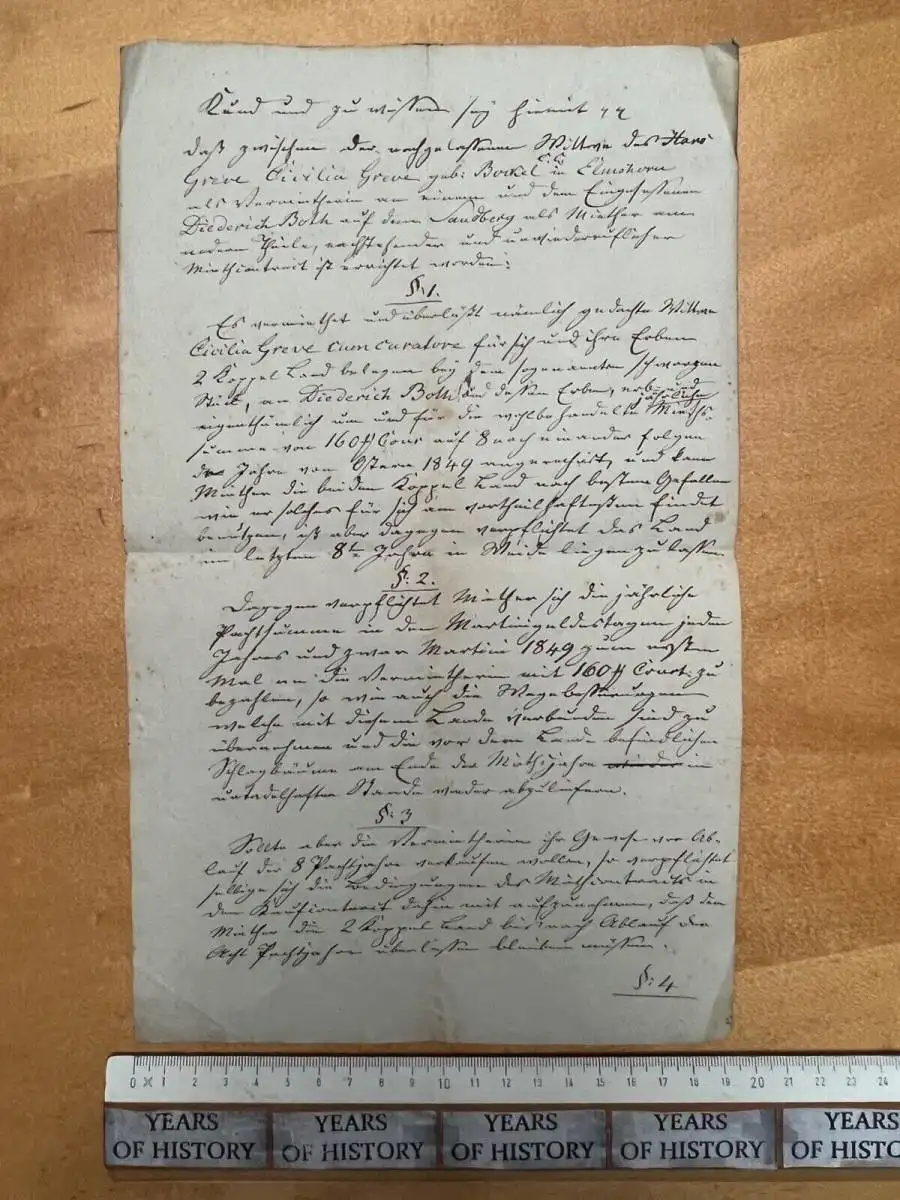 Kund und zu wissen sey hiemit
daß zwischen der nachgelassenen Wittwe des Hans
Greve Cicilia Greve geb: Bockel c. c. in Elmshorn
als Vermietherin an einem und dem Eingesessenen
Diederich Both auf dem Sandberg als Miether am
andern Theile, nachstehender und unwiederruflicher
Miethcontract ist errichtet worden:
§:1.
Es vermiethet und überläßt nämlich gedachte Wittwe
Cicilia Greve cum curatore für sich und ihre Erben
2 Koppel Land belegen bey dem sogenannten schwarzen
Stück, an Diederich Both und dessen Erben, erb- und
eigenthümlich um und für die jährliche Mieth-
summe von 160 ₰ Cour auf 8 nach einander folgen
de Jahre von Ostern 1849 angerechnet, und kann
Miether die beiden Koppel Land nach besten Gefallen
wie er solches für sich am vortheilhaftesten findet
benutzen, ist aber dagegen verpflichtet das Land
im letzten 8t Jahre in Weide liegen zu lassen
§: 2.
Dagegen verpflichtet Miether sich die jährliche
Pachtsumme in den Martinigeldestagen jeden
Jahres und zwar Martini 1849 zum ersten
Mal an die Vermietherin mit 160 ₰ Court. zu
bezahlen, so wie auch die Wegebesserungen
welche mit diesem Lande verbunden sind zu
übernehmen und die vor dem Lande befindlichen
Schlagbäume am Ende der Miethjahre in
untadelhaften Stande wieder abzuliefern.
§: 3
Sollte aber die Vermietherin ihr Gewese vor Ab-
lauf der 8 Pachtjahre verkaufen wollen, so verpflichtet
selbige sich die Bedingungen des Miethcontracts in
dem Kaufcontract dahin mit aufzunehmen, daß dem
Miether die 2 Koppel Land bis nach Ablauf der
Acht Pachtjahre überlassen bleiben müssen.
§: 4
YEARS OF HISTORY
YEARS OF HISTORY
YEARS OF HISTORY
YEARS OF HISTORY
YEARS
0 1 2 3 4 5 6 7 8 9 10 11 12 13 14 15 16 17 18 19 20 21 22 23 24